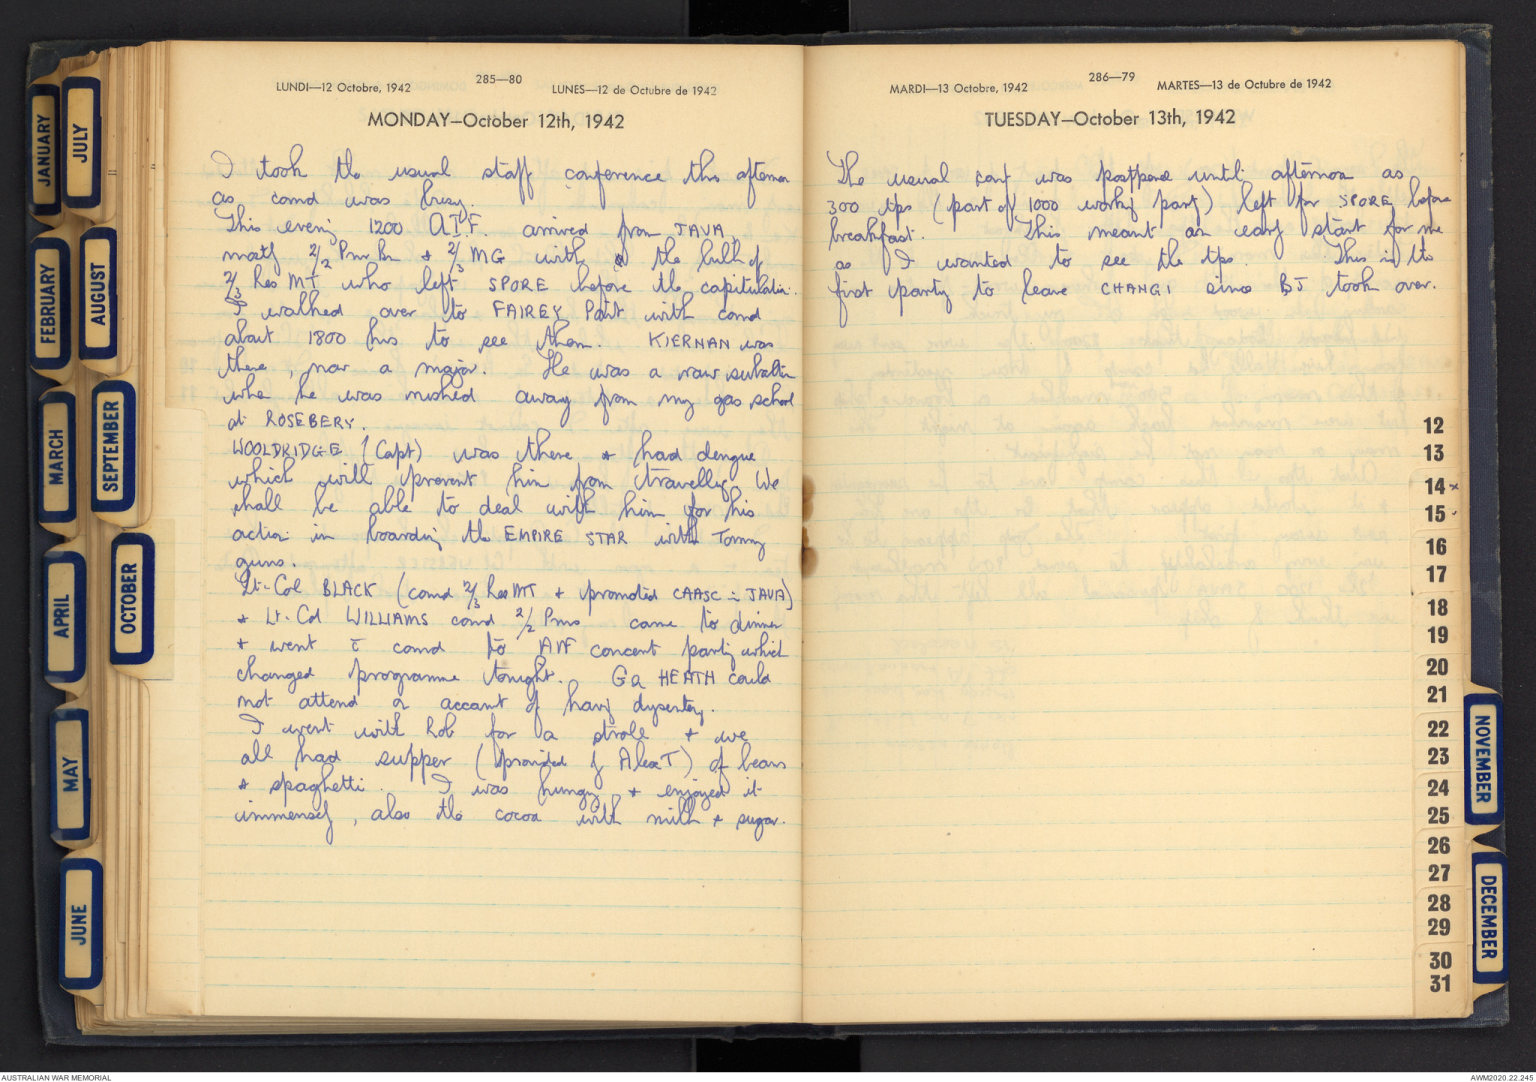 JANUARY
FEBRUARY
MARCH
APRIL
MAY
JUNE
JULY
AUGUST
SEPTEMBER
OCTOBER
LUNDI—12 Octobre, 1942
285—80
LUNES—12 de Octubre de 1942
MONDAY—October 12th, 1942
I took the usual staff conference this afternoon
as comd was busy.
This evening 1200 A.I.F. arrived from JAVA,
mostly 2/2 Pnr Bn + 2/3 MG with the bulk of
2/3 Res MT who left SPORE before the capitulation.
I walked over to FAIREY Point with comd
about 1800 hrs to see them. KIERNAN was
there, now a major. He was a raw subaltern
when he was rushed away from my gas school
at ROSEBERY.
WOOLDRIDGE (Capt) was there + had dengue
which will prevent him from travelling. We
shall be able to deal with him for his
action in boarding the EMPIRE STAR with Tommy
guns.
Lt-Col BLACK (comd 2/3 Res MT + promoted CAASC in JAVA)
+ Lt-Col WILLIAMS comd 2/2 Pnrs came to dinner
+ went c̄ comd to AIF concert party which
changed programme tonight. Gen HEATH could
not attend on account of having dysentery.
I went with Rob for a stroll + we
all had supper (provided by Alex T) of beans
+ spaghetti. I was hungry + enjoyed it
immensely, also the cocoa with milk + sugar.
MARDI—13 Octobre, 1942
286—79
MARTES—13 de Octubre de 1942
TUESDAY—October 13th, 1942
The usual conf was postponed until afternoon as
300 tps (part of 1000 working party) left for SPORE before
breakfast. This meant an early start for me
as I wanted to see the tps. This is the
first party to leave CHANGI since BJ took over.
12
13
14
15
16
17
18
19
20
21
22
23
24
25
26
27
28
29
30
31
NOVEMBER
DECEMBER
AUSTRALIAN WAR MEMORIAL
AWM2020.22.245